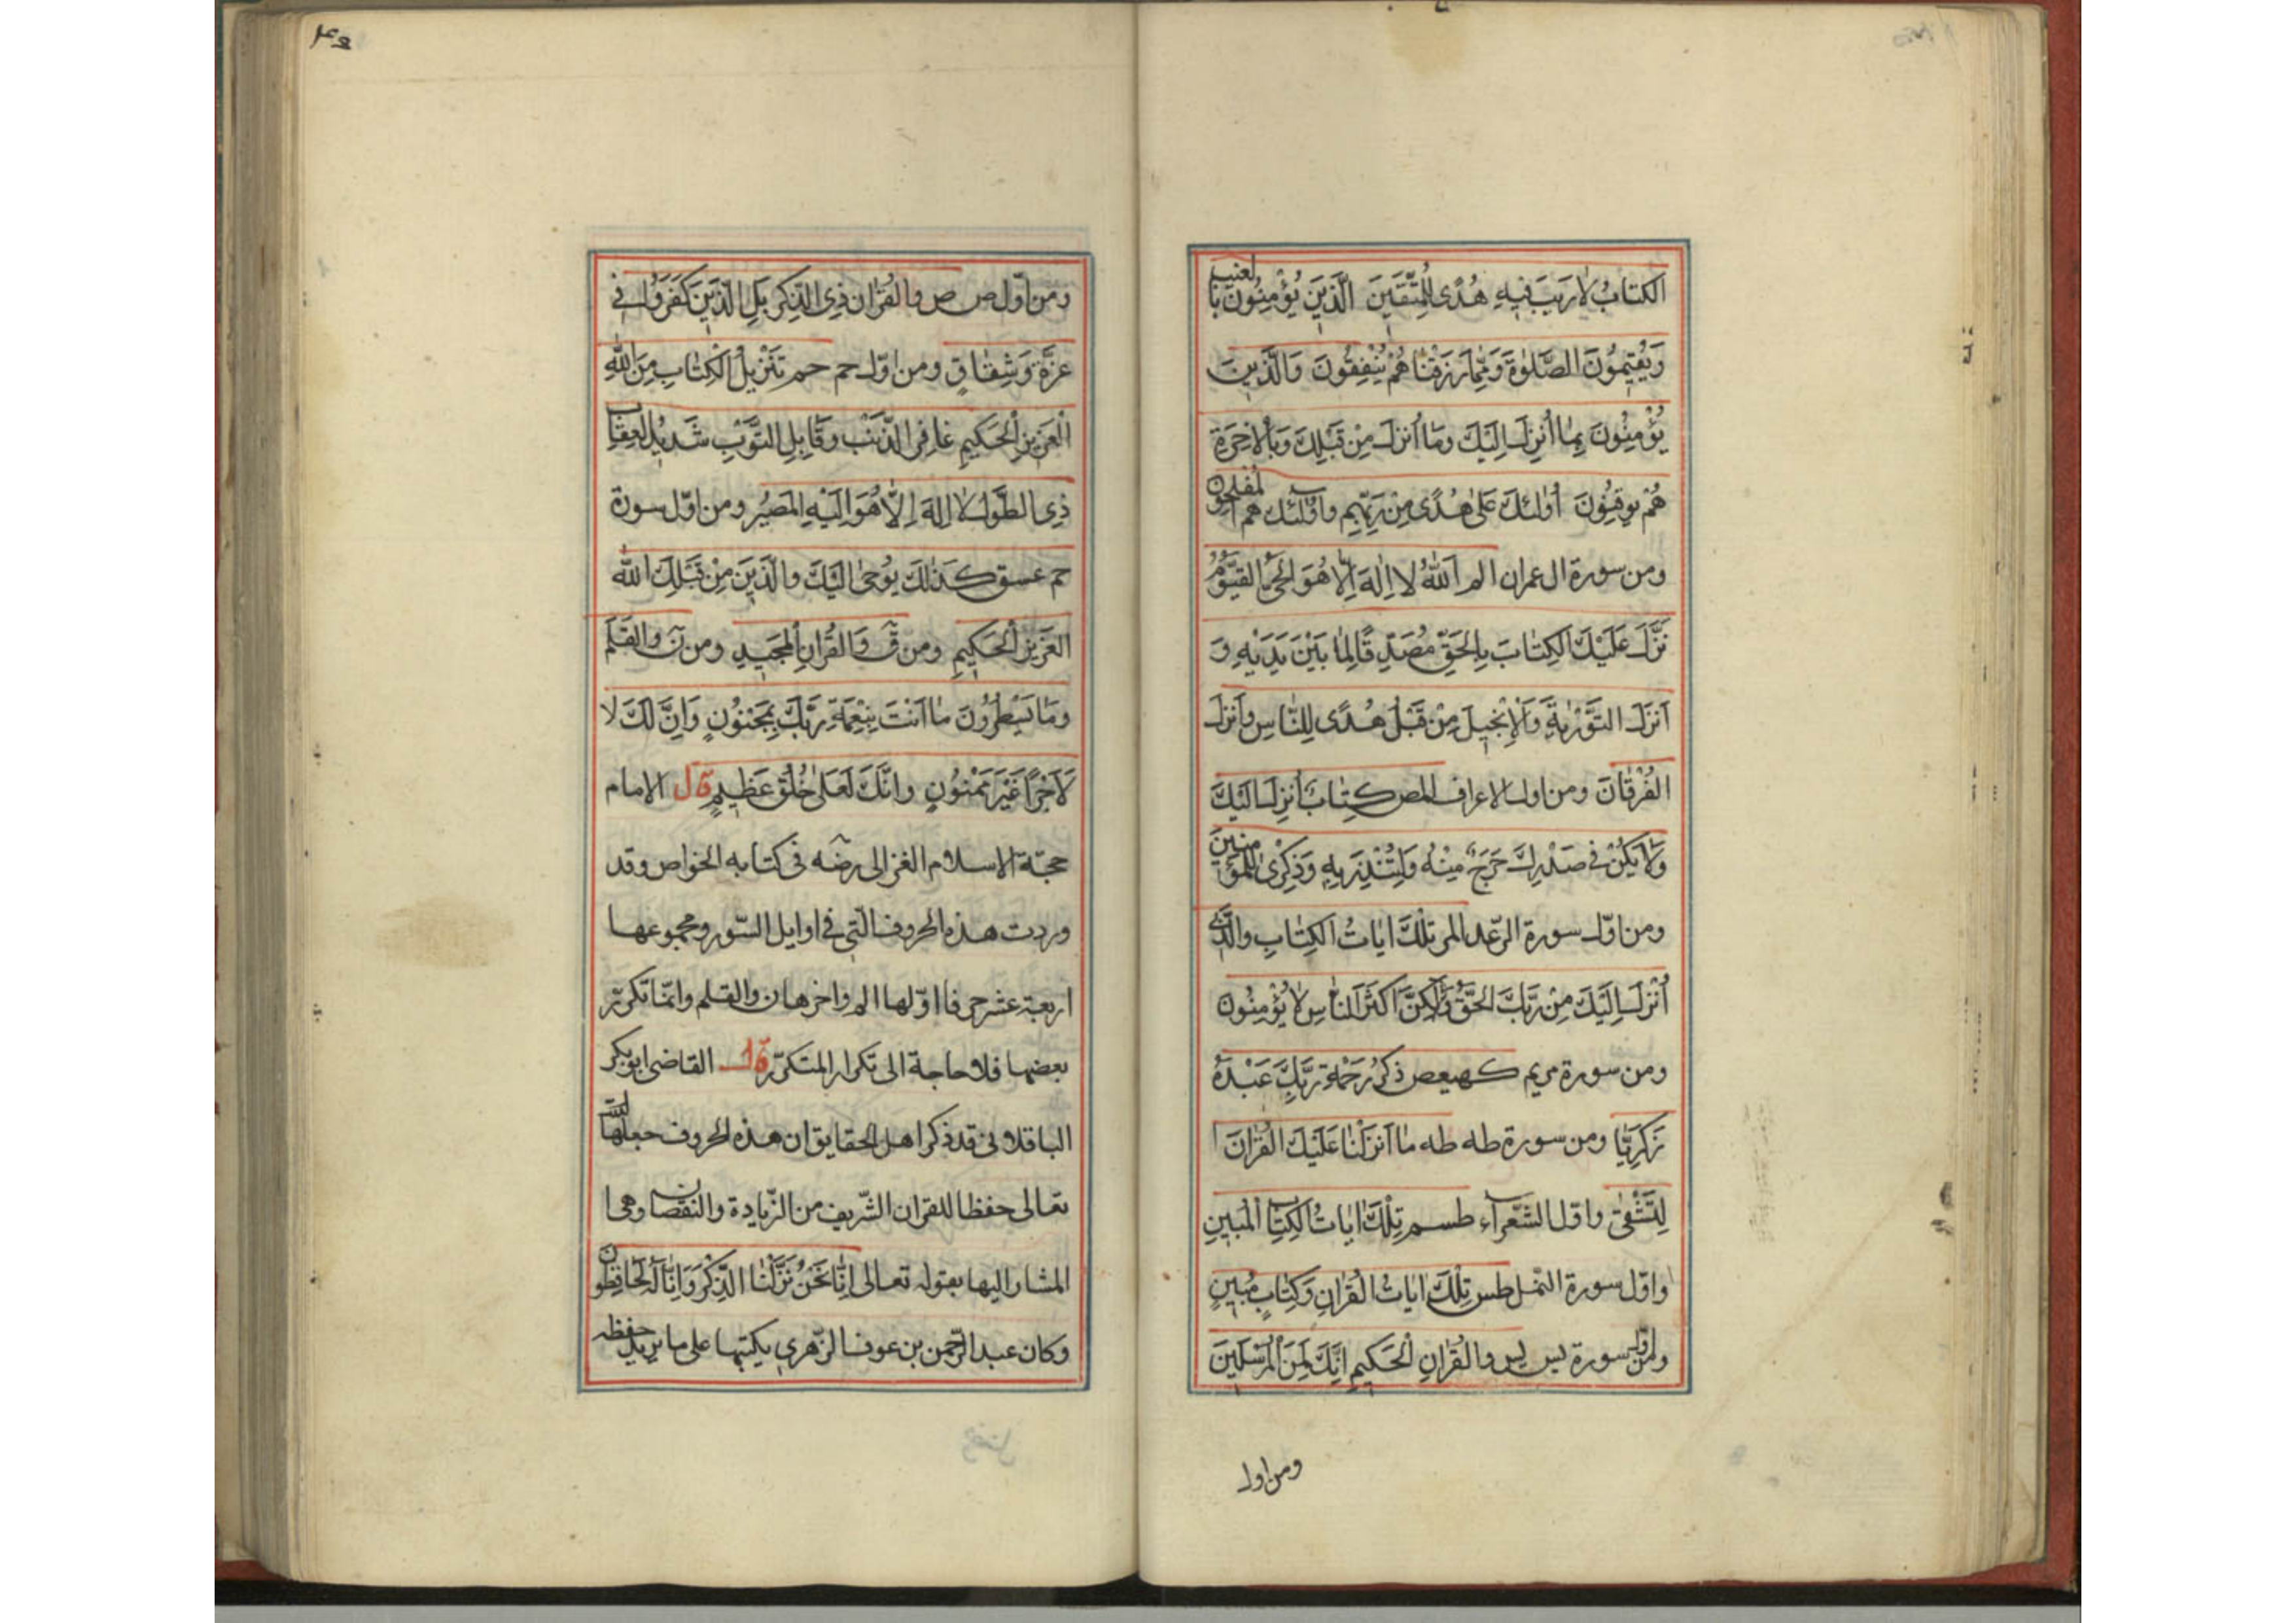 الكتابُ لَا رَيبَ فيهِ هُدًى لِلمُتَّقينَ الَّذينَ يُؤْمِنُونَ بالغيب
وَيُقيمُونَ الصَّلوٰةَ وَمِمَّا رَزَقْنَاهُمْ يُنْفِقُونَ وَالَّذينَ
يُؤْمِنُونَ بِمَا أُنزِلَ اِلَيْكَ وَمَا اُنزلَ مِنْ قَبْلِكَ وَبِالْاخِرَةِ
هُمْ يوقِنُونَ أُولٰئكَ عَلىٰ هُدًى مِنْ رَبِّهِم واولئك هم المفلحون
ومن سورة ال عمران الم اَللّٰهُ لا اِلٰهَ اِلَّا هُوَ الْحَىُّ القَيُّومُ
نَزَّلَ عَلَيْكَ الكِتَابَ بِالحَقِّ مُصَدِّقًا لِمَا بَيْنَ يَدَيْهِ وَ
اَنزَلَ التَّوْرٰيةَ وَالْاِنْجيلَ مِنْ قَبْلُ هُدًى لِلنَّاسِ وَاَنزَلَ
الفُرْقَانَ ومن اول الاعراف المص كِتَابٌ اُنزِلَ اليْكَ
وَلَا يَكُنْ فى صَدْرِكَ حَرَجٌ مِنْهُ وَلِتُنْذِرَ بِهِ وَذِكْرىٰ لِلمؤمنينَ
ومن اوّل سورة الرّعد المر تِلْكَ ايَاتُ الكِتَابِ والَّذى
اُنْزِلَ اِلَيْكَ مِنْ رَبِّكَ الحَقُّ وَلٰكِنَّ اَكْثَرَ النَّاسِ لَا يُؤْمِنُونَ
ومن سورة مريم كهيعص ذِكْرُ رَحْمَةِ رَبِّكَ عَبْدَهُ
زَكَرِيَّا ومن سورة طه طه مَا اَنزَلْنَا عَلَيْكَ القُرْانَ ا
لِتَشْقىٰ واوّل الشّعرآء طسم تِلْكَ ايَاتُ الكِتَابِ المُبينِ
واوّل سورة النّمل طس تِلْكَ ايَاتُ القُرْانِ وَكِتَابٍ مُبينٍ
ومن اوّل سورة يس يس والقُرْانِ الْحَكيمِ اِنَّكَ لَمِنَ الْمُرْسَلينَ
ومن اول
٤٥
ومن اوّل ص ص والقُرْان ذِى الذِّكرِ بَلِ الَّذينَ كَفَرَوُا فى
عِزَّةٍ وَشِقَاقٍ ومن اوّل حم حم تَنْزيلُ الْكِتَابِ مِنَ اللّٰهِ
الْعَزيزِ الْحَكيمِ غَافِرِ الذَّنْبِ وَقَابِلِ التَّوْبِ شَديدِ العِقَاب
ذِى الطَّوْلِ لا اِلٰهَ اِلَّا هُوَ اِلَيْهِ المَصيرُ ومن اوّل سورة
حم عسق كَذٰلِكَ يُوحىٰ اِلَيْكَ والَّذينَ مِنْ قَبْلِكَ اللّٰهُ
العَزيزِ الْحَكيمِ ومن قٓ وَالقُرْانِ المَجيدِ ومن نٓ والقَلَمِ
وَمَا يَسْطُرُونَ مَا اَنْتَ بِنِعْمَةِ رَبِّكَ بِمَجْنوُنٍ وَاِنَّ لَكَ لا
لَاَجْرًا غَيْرَ مَمْنوُنٍ وانَّكَ لَعَلىٰ خُلُقٍ عَظيمٍ قال الامام
حجّة الاسلام الغزالى رضه فى كتابه الخواص وقد
وردت هذه الحروف الّتى فى اوايل السّور ومجموعها
اربعة عشر حرفا اوّلها الم واخرها ن والقلم وانّما تكرّر
بعضها فلا حاجة الى تكرار المتكرّر قال القاضى ابوبكر
الباقلانى قد ذكر اهل الحقايق ان هذه الحروف جعلها الله
تعالى حفظا للقران الشّريف من الزّيادة والنّقصان وهى ا
المشار اليها بقوله تعالى اِنَّا نَحْنُ نَزَّلْنَا الذِّكْرَ وَاِنَّا لَهُ لَحَافِظُون
وكان عبد الرّحمن بن عوف الزّهرى يكتبها على ما يريد حفظه